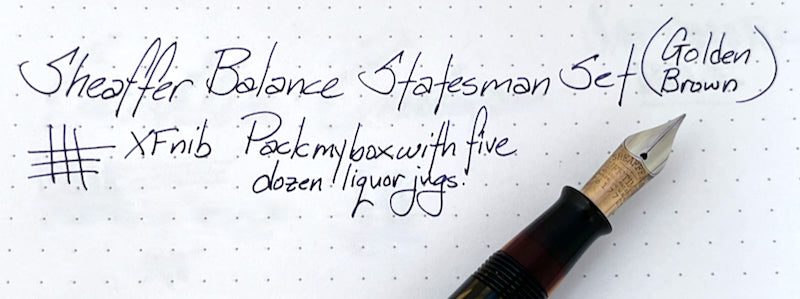 Sheaffer Balance Statesman Set (Golden Brown)
XF nib Pack my box with five
dozen liquor jugs.